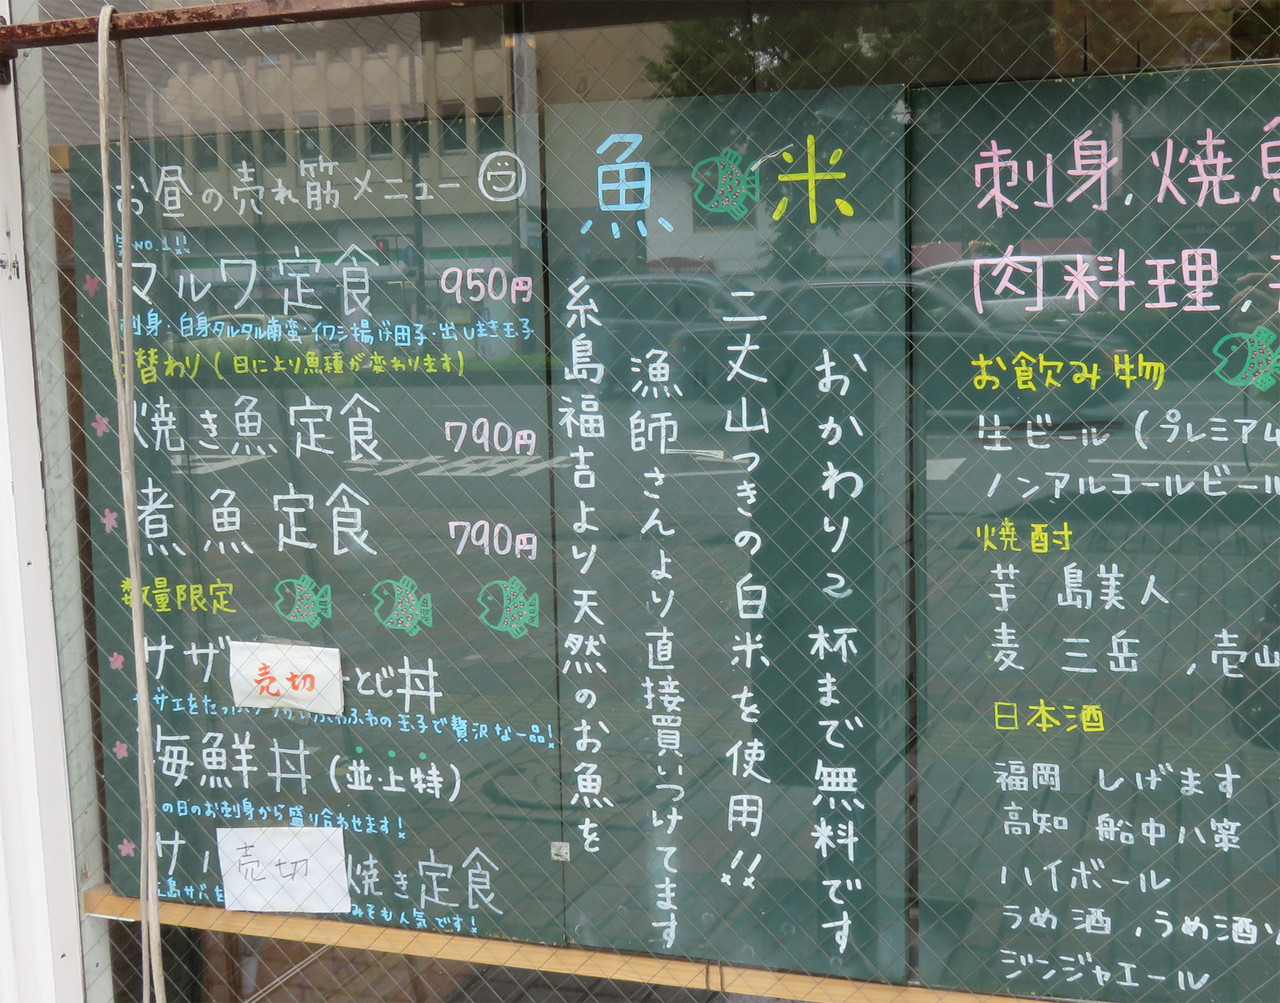 お昼の売れ筋メニュー
NO.1!!
マルワ定食 950円
刺身・白身タルタル南蛮・イワシ揚げ団子・出しまき玉子
日替わり(日により魚種が変わります)
焼き魚定食 790円
煮魚定食 790円
数量限定
サザ 売切 とじ丼
サザエをたっぷり ふわふわの玉子で贅沢な一品!
海鮮丼(並・上・特)
の日のお刺身から盛り合わせます!
サバ 売切 焼き定食
島サバを みそも人気です!
魚 米
糸島福吉より天然のお魚を
漁師さんより直接買いつけてます
二丈山つきの白米を使用!!
おかわり2杯まで無料です
刺身,焼魚
肉料理,
お飲み物
生ビール(プレミアム
ノンアルコールビール
焼酎
芋 島美人
麦 三岳,壱岐
日本酒
福岡 しげます
高知 船中八策
ハイボール
うめ酒,うめ酒ソ
ジンジャエール